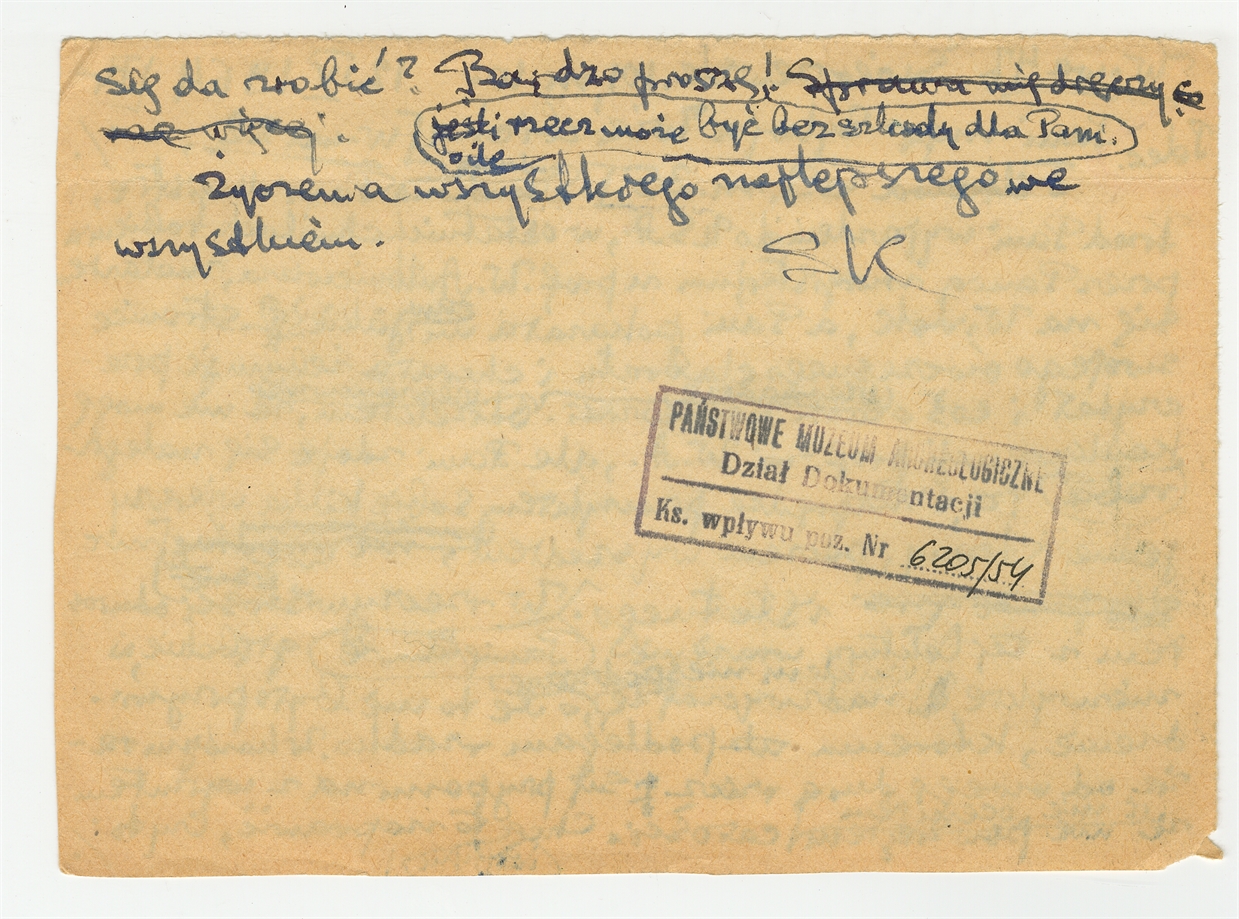 się da zrobić? Bardzo proszę! Sprawa mię dręczy co
raz więcej. jeśli rzecz może być bez szkody dla Pani.
o ile
życzenia wszystkiego najlepszego we
wszystkiem.
EK
PAŃSTWOWE MUZEUM ARCHEOLOGICZNE
Dział Dokumentacji
Ks. wpływu poz. Nr 6205/54